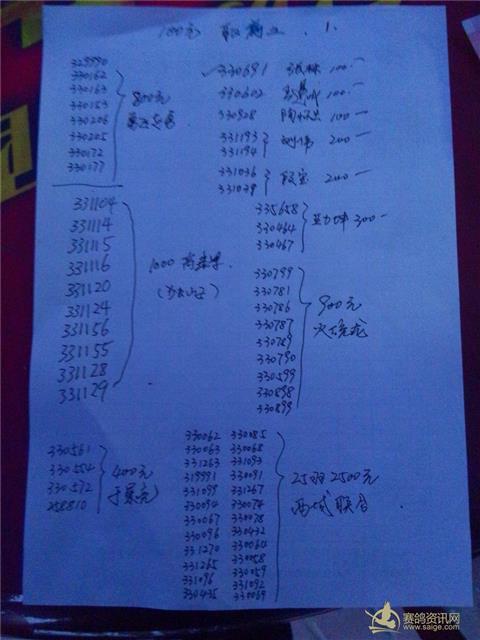 100元
329990
330162
330163
330153
330206
330205
330172
330177
800元
330691 100.-
330602 100.-
330928 100-
331193
331194
200-
331036
331039
200-
331104
331114
331115
331116
331120
331124
331156
331155
331128
331129
1000
335658
330464
330467
300-
330799
330781
330786
330787
330789
330790
330599
330898
330899
900元
火烧龙
330561
330554
330572
258810
400元
330062 330085
330063 330068
331263 331093
319991 330091
331099 331267
330094 330074
330067 330078
330096 330432
331270 330064
331265 330058
331096 330059
330435 331092
330069
25羽2500元
西城联合
赛鸽资讯网
www.saige.com